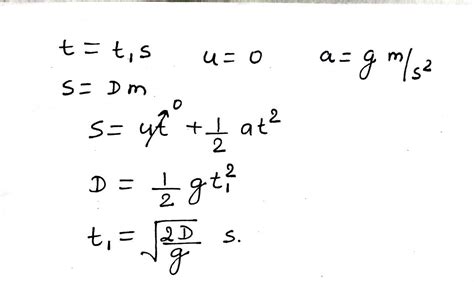 t = t₁ s    u = 0    a = g m/s²
s = D m
s = ut⁰ + 1/2 at²
D = 1/2 gt₁²
t₁ = √(2D/g) s.